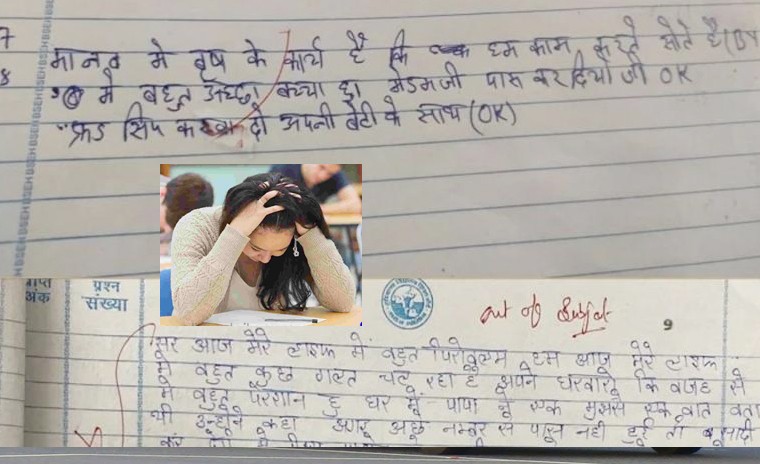 7
मानव मे वृष के कार्य है कि हम काम करते सोते है
8
मे बहुत अच्छा बच्चा हा मेडमजी पास कर दियो जी OK
फ्रड सिप करवा दो अपनी बेटी के साथ (OK)
BSEH BSEH BSEH BSEH
प्राप्त अंक
प्रश्न संख्या
out of Subject
9
सर आज मेरे लाइफ में बहुत पिरोबलम हम आज मेरे लाइफ
मे बहुत कुछ गलत चल रहा है अपने घरवालो कि वजह से
मे बहुत परेशान हु घर में पापा ने एक मुझसे एक बात बता
थी उन्होंने कहा अगर अछे नम्बर से पास नही हुई तो